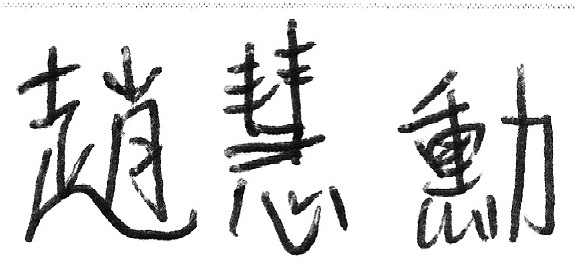 趙慧勳